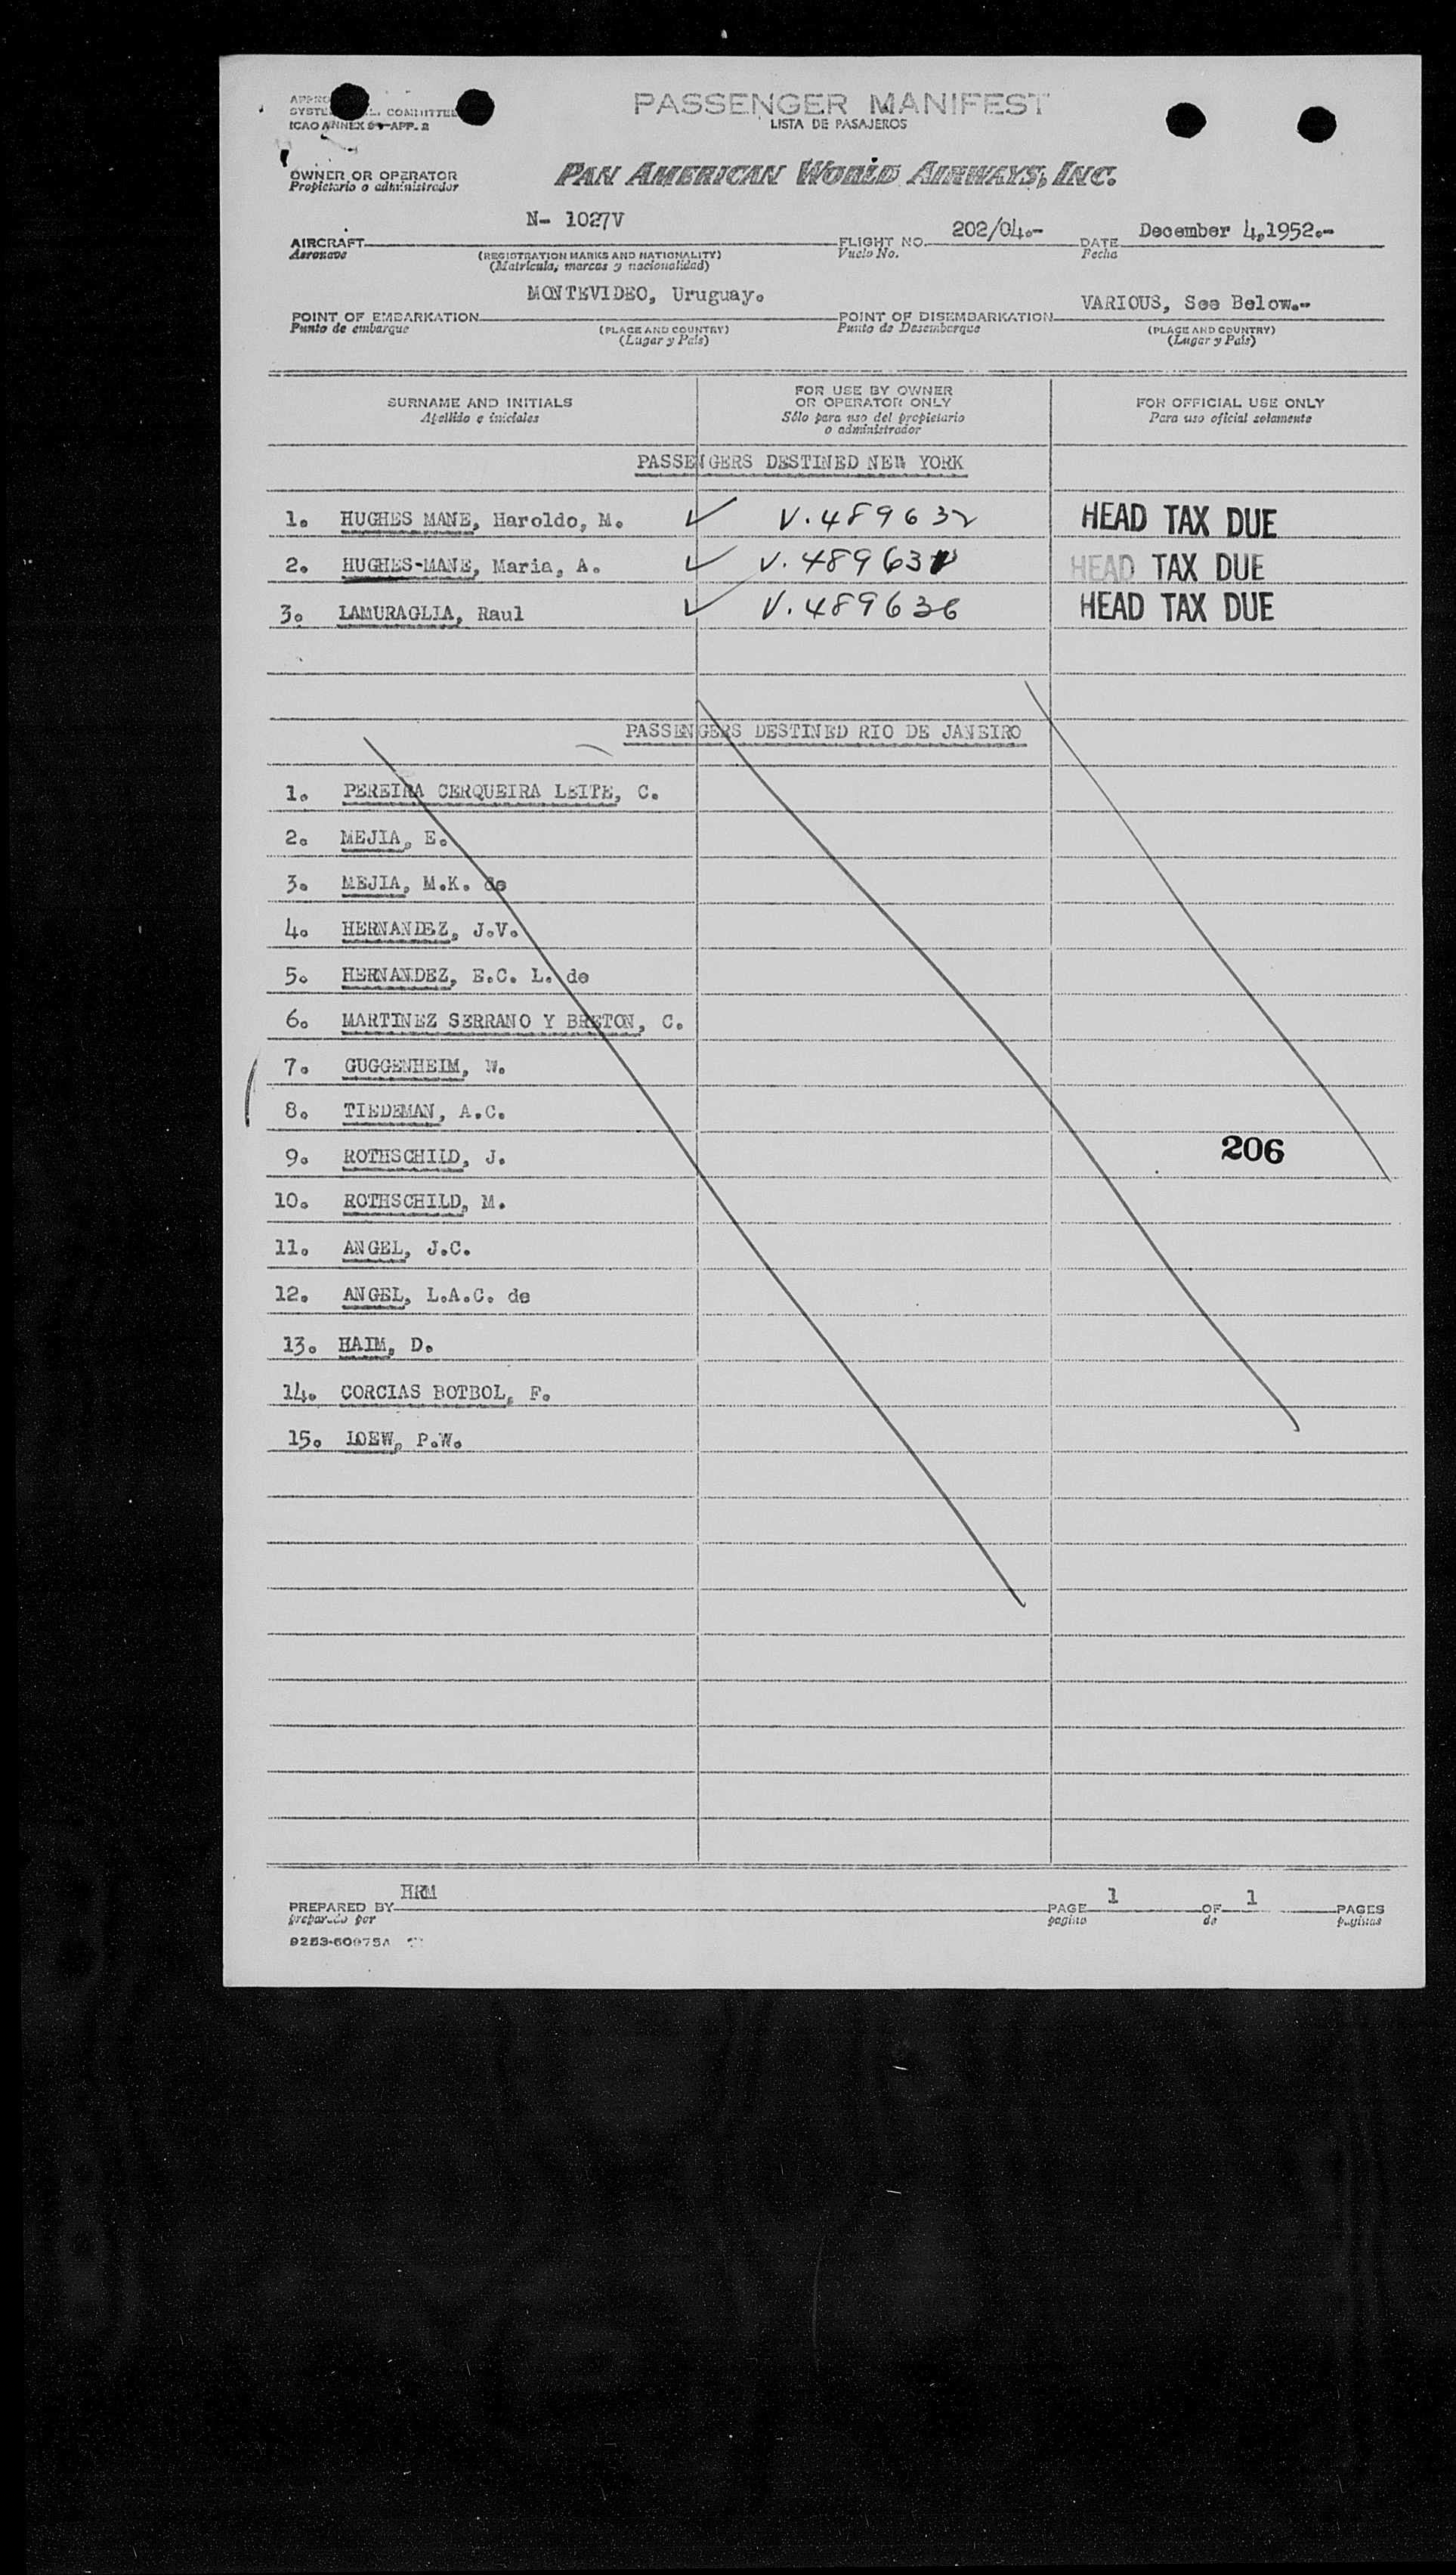 PASSENGER MANIFEST
LISTA DE PASAJEROS
COMMITTEE
ICAO ANNEX 9-APP. 2
OWNER OR OPERATOR
Propietario o administrador
PAN AMERICAN WORLD AIRWAYS, INC.
N- 1027V
202/04.-
December 4,1952.-
AIRCRAFT
Aeronave
(REGISTRATION MARKS AND NATIONALITY)
(Matrícula, marcas y nacionalidad)
FLIGHT NO.
Vuelo No.
DATE
Fecha
MONTEVIDEO, Uruguay.
VARIOUS, See Below.-
POINT OF EMBARKATION
Punto de embarque
(PLACE AND COUNTRY)
(Lugar y País)
POINT OF DISEMBARKATION
Punto de Desembarque
(PLACE AND COUNTRY)
(Lugar y País)
SURNAME AND INITIALS
Apellido e iniciales
FOR USE BY OWNER
OR OPERATOR ONLY
Sólo para uso del propietario
o administrador
FOR OFFICIAL USE ONLY
Para uso oficial solamente
PASSENGERS DESTINED NEW YORK
1. HUGHES MANE, Haroldo, M. ✓ V.489632 HEAD TAX DUE
2. HUGHES-MANE, Maria, A. ✓ V. HEAD TAX DUE
3. LAMURAGLIA, Raul ✓ V.489636 HEAD TAX DUE
PASSENGERS DESTINED RIO DE JANEIRO
1. PEREIRA CERQUEIRA LEITE, C.
2. MEJIA, E.
3. MEJIA, M.K. de
4. HERNANDEZ, J.V.
5. HERNANDEZ, E.C. L. de
6. MARTINEZ SERRANO Y BRETON, C.
7. GUGGENHEIM, W.
8. TIEDEMAN, A.C.
9. ROTHSCHILD, J.
206
10. ROTHSCHILD, M.
11. ANGEL, J.C.
12. ANGEL, L.A.C. de
13. HAIM, D.
14. CORCIAS BOTBOL, F.
15. LOEW, P.W.
HRM
PREPARED BY
preparado por
PAGE 1 OF 1 PAGES
pagina de paginas
9253-60975A